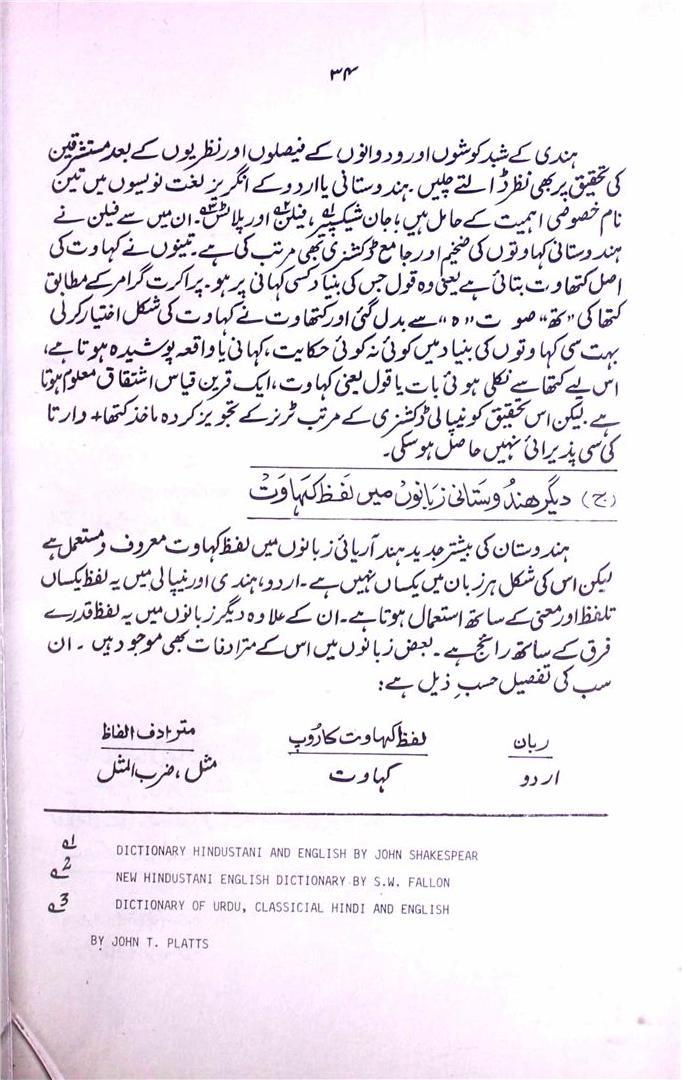 ۳۴
ہندی کے شبد کوشوں اور ودوانوں کے فیصلوں اور نظریوں کے بعد مستشرقین
کی تحقیق پر بھی نظر ڈالتے چلیں۔ ہندوستانی یا اردو کے انگریز لغت نویسوں میں تین
نام خصوصی اہمیت کے حامل ہیں، جان شیکسپیر۱؎، فیلن۲؎ اور پلاٹس۳؎۔ ان میں سے فیلن نے
ہندوستانی کہاوتوں کی ضخیم اور جامع ڈکشنری بھی مرتب کی ہے۔ تینوں نے کہاوت کی
اصل کتھاوت بتائی ہے یعنی وہ قول جس کی بنیاد کسی کہانی پر ہو۔ پراکرت گرامر کے مطابق
کتھا کی "تھ" صوت "ہ" سے بدل گئی اور کتھاوت نے کہاوت کی شکل اختیار کر لی
بہت سی کہاوتوں کی بنیاد میں کوئی نہ کوئی حکایت، کہانی یا واقعہ پوشیدہ ہوتا ہے،
اس لیے کتھا سے نکلی ہوئی بات یا قول یعنی کہاوت، ایک قرین قیاس اشتقاق معلوم ہوتا
ہے لیکن اس تحقیق کو نیپالی ڈکشنری کے مرتب ٹرنر کے تجویز کردہ ماخذ کتھا + وارتا
کی سی پذیرائی نہیں حاصل ہو سکی۔
(ج) دیگر ہندوستانی زبانوں میں لفظ کہاوت
ہندوستان کی بیشتر جدید ہند آریائی زبانوں میں لفظ کہاوت معروف و مستعمل ہے
لیکن اس کی شکل ہر زبان میں یکساں نہیں ہے۔ اردو، ہندی اور نیپالی میں یہ لفظ یکساں
تلفظ اور معنی کے ساتھ استعمال ہوتا ہے۔ ان کے علاوہ دیگر زبانوں میں یہ لفظ قدرے
فرق کے ساتھ رائج ہے۔ بعض زبانوں میں اس کے مترادفات بھی موجود ہیں۔ ان
سب کی تفصیل حسبِ ذیل ہے:
زبان لفظ کہاوت کا رُوپ مترادف الفاظ
اردو کہاوت مثل، ضرب المثل
۱؎ DICTIONARY HINDUSTANI AND ENGLISH BY JOHN SHAKESPEAR
۲؎ NEW HINDUSTANI ENGLISH DICTIONARY BY S.W. FALLON
۳؎ DICTIONARY OF URDU, CLASSICIAL HINDI AND ENGLISH
BY JOHN T. PLATTS